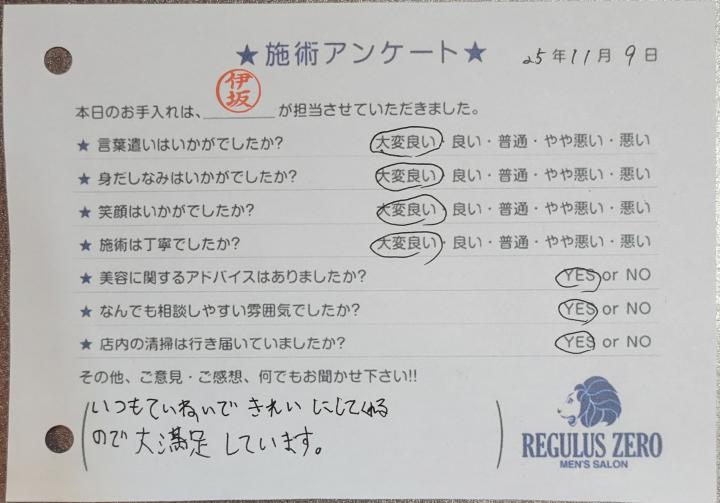 ★施術アンケート★ 25年11月9日
伊坂
本日のお手入れは、 が担当させていただきました。
★ 言葉遣いはいかがでしたか? 大変良い・良い・普通・やや悪い・悪い
★ 身だしなみはいかがでしたか? 大変良い・良い・普通・やや悪い・悪い
★ 笑顔はいかがでしたか? 大変良い・良い・普通・やや悪い・悪い
★ 施術は丁寧でしたか? 大変良い・良い・普通・やや悪い・悪い
★ 美容に関するアドバイスはありましたか? YES or NO
★ なんでも相談しやすい雰囲気でしたか? YES or NO
★ 店内の清掃は行き届いていましたか? YES or NO
その他、ご意見・ご感想、何でもお聞かせ下さい!!
いつもていねいで きれいにしてくれる
ので 大満足 しています。
REGULUS ZERO
MEN'S SALON